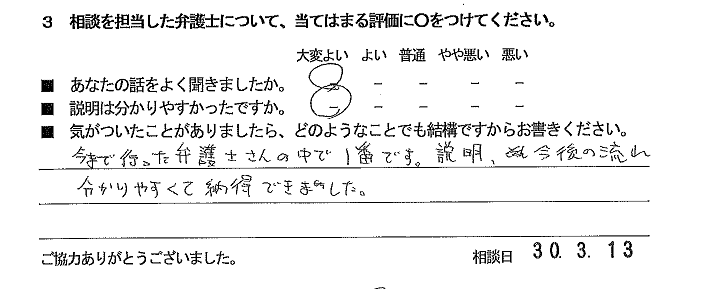 3 相談を担当した弁護士について、当てはまる評価に○をつけてください。
大変よい よい 普通 やや悪い 悪い
■ あなたの話をよく聞きましたか。 - - - - -
■ 説明は分かりやすかったですか。 - - - - -
■ 気がついたことがありましたら、どのようなことでも結構ですからお書きください。
今まで行った弁護士さんの中で1番です。説明、今後の流れ
分かりやすくて納得できました。
ご協力ありがとうございました。 相談日 30. 3. 13